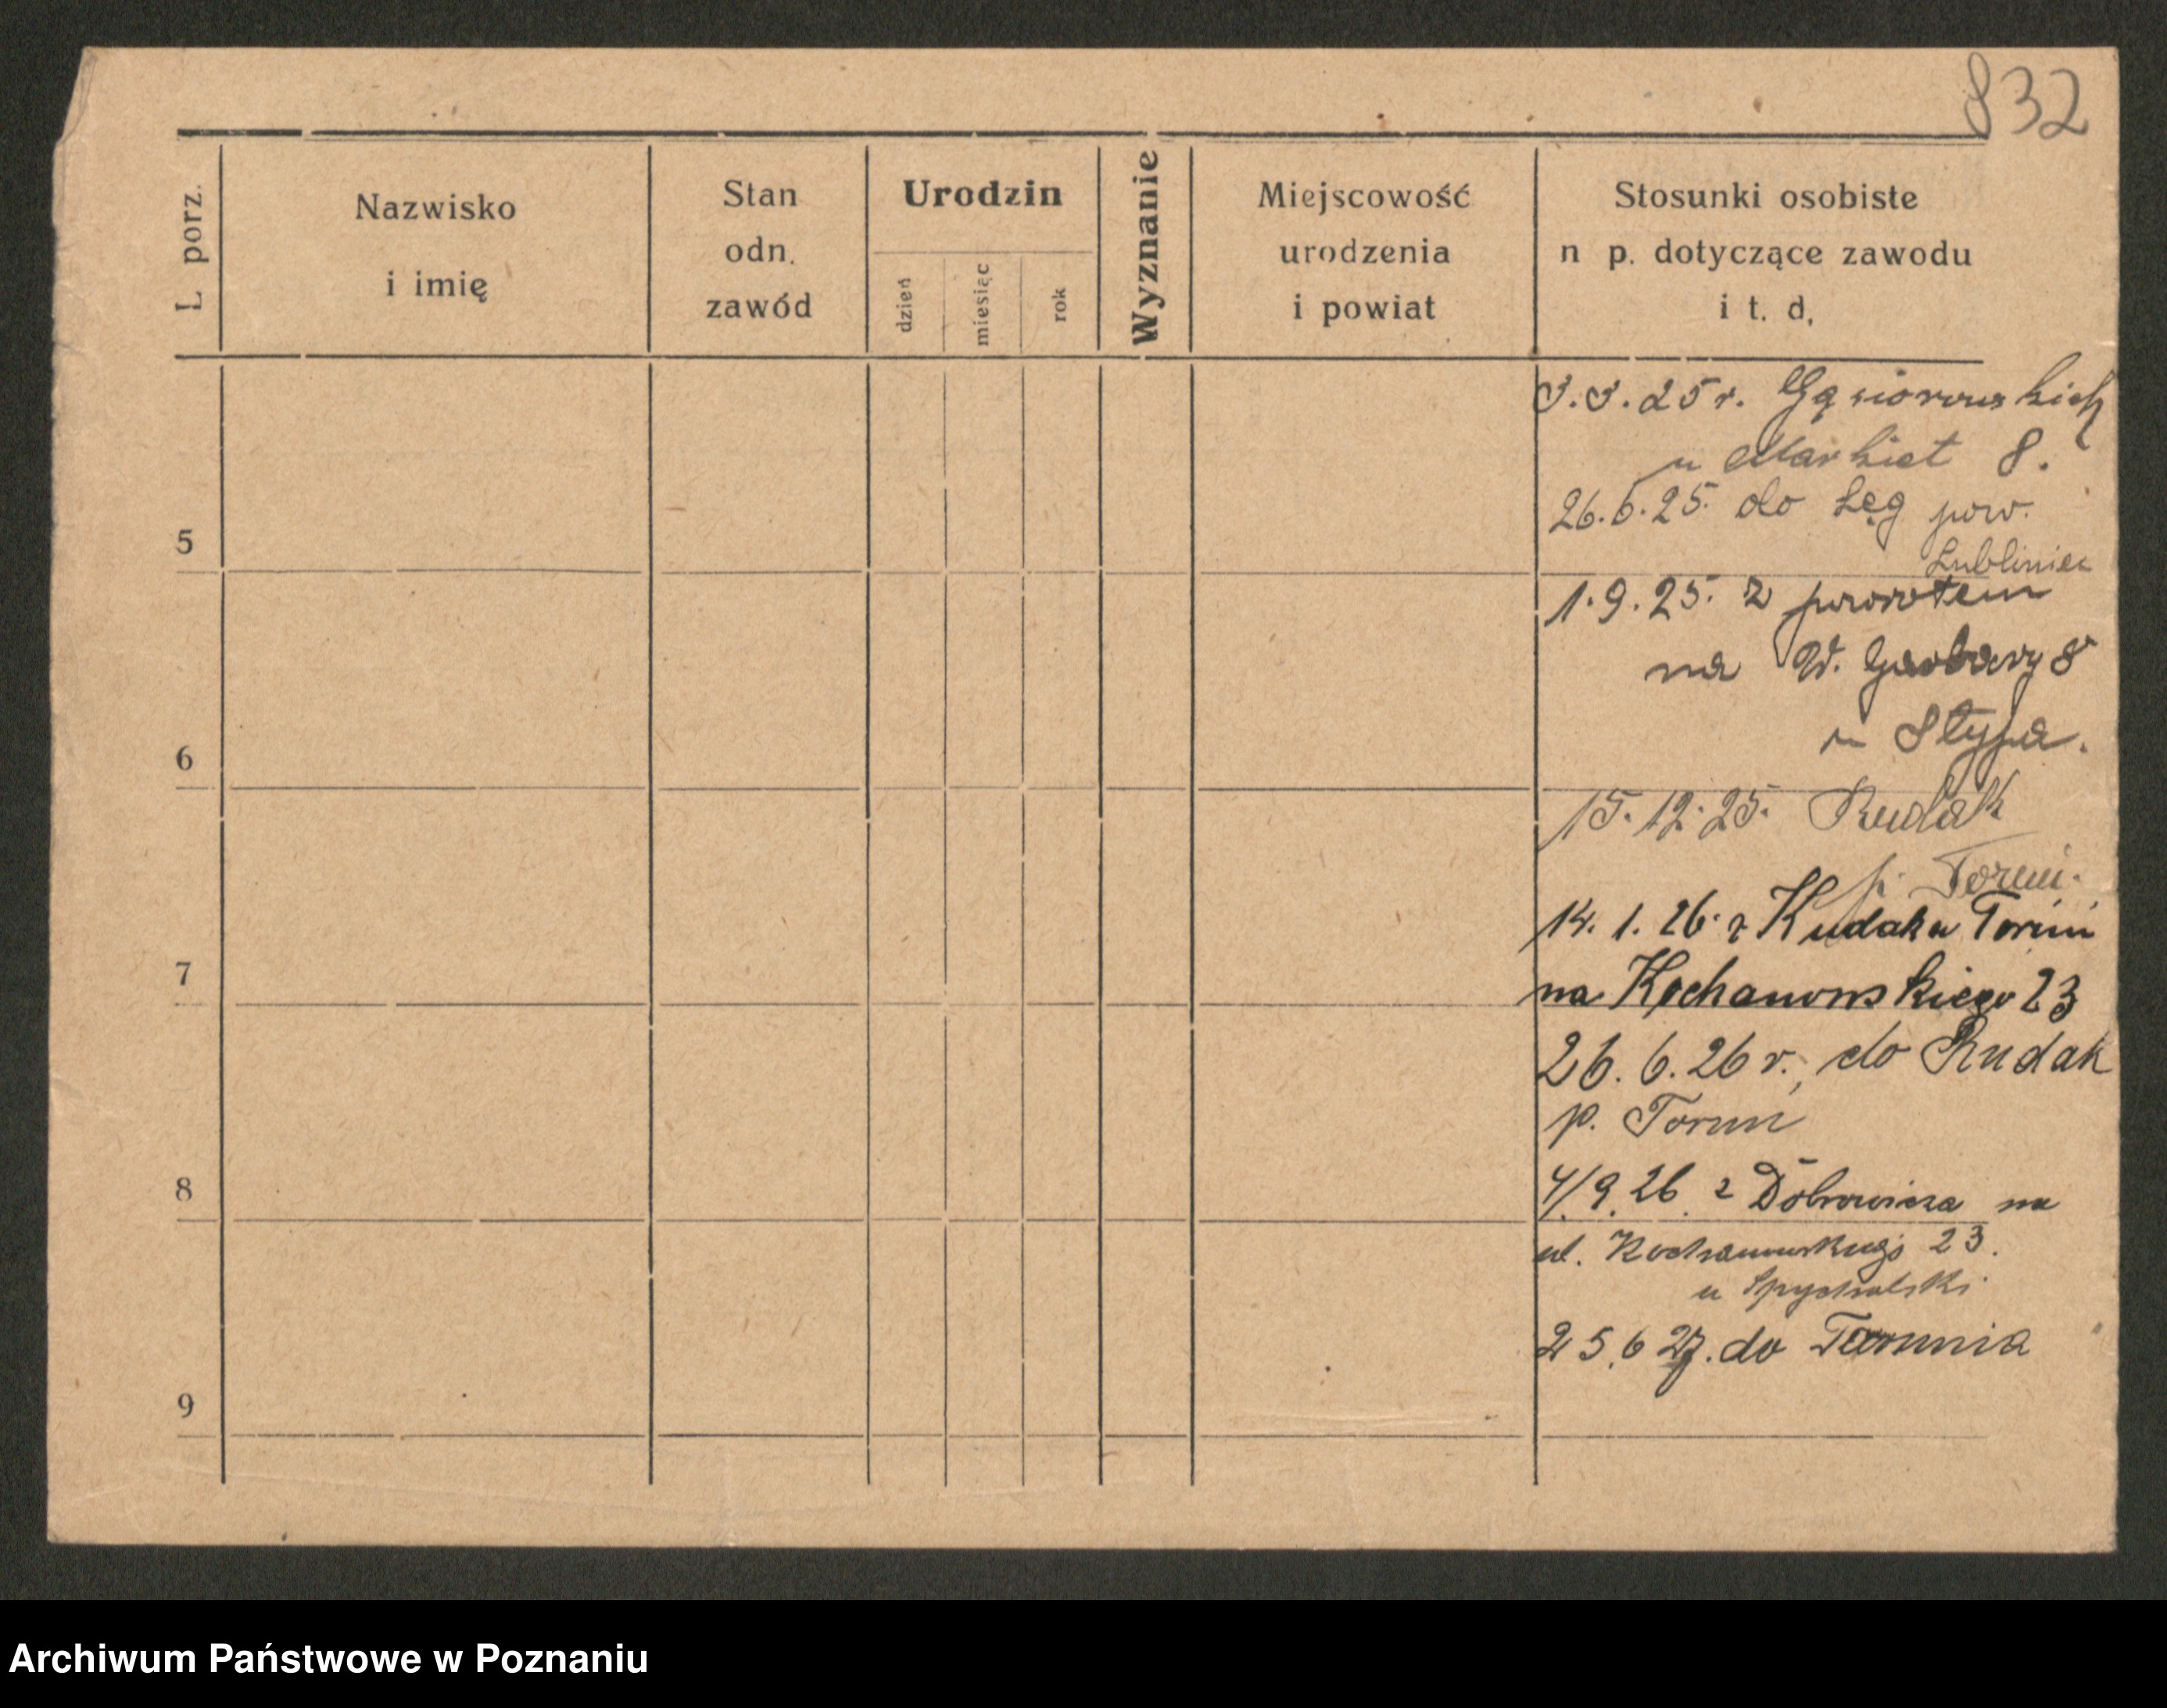 832
L. porz.
Nazwisko
i imię
Stan
odn.
zawód
Urodzin
dzień
miesiąc
rok
Wyznanie
Miejscowość
urodzenia
i powiat
Stosunki osobiste
n p. dotyczące zawodu
i t. d.
25 r. Gąsiorowskich
u 8.
26.6.25. do Łęg pow.
Lubliniec
5
1.9.25. z powrotem
na W. Garbary 8
u
6
15.12.25. Rudak
p. Toruń.
14. 1. 26. z Rudaka Toruń
7
na Kochanowskiego 23
26. 6. 26 r., do Rudak
p. Toruń
8
4/9. 26. z na
ul. Kochanowskiego 23.
u Spychalski
25.6 27. do Torunia
9
Archiwum Państwowe w Poznaniu